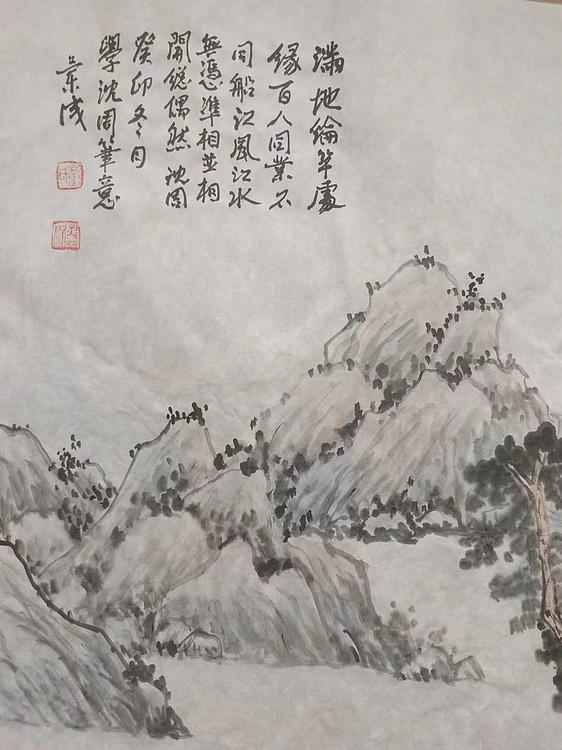 滿地綸竿處
緣百人同業不
同船江風江水
無憑準相並相
開總偶然 沈周
癸卯冬月
學沈周筆意
景成